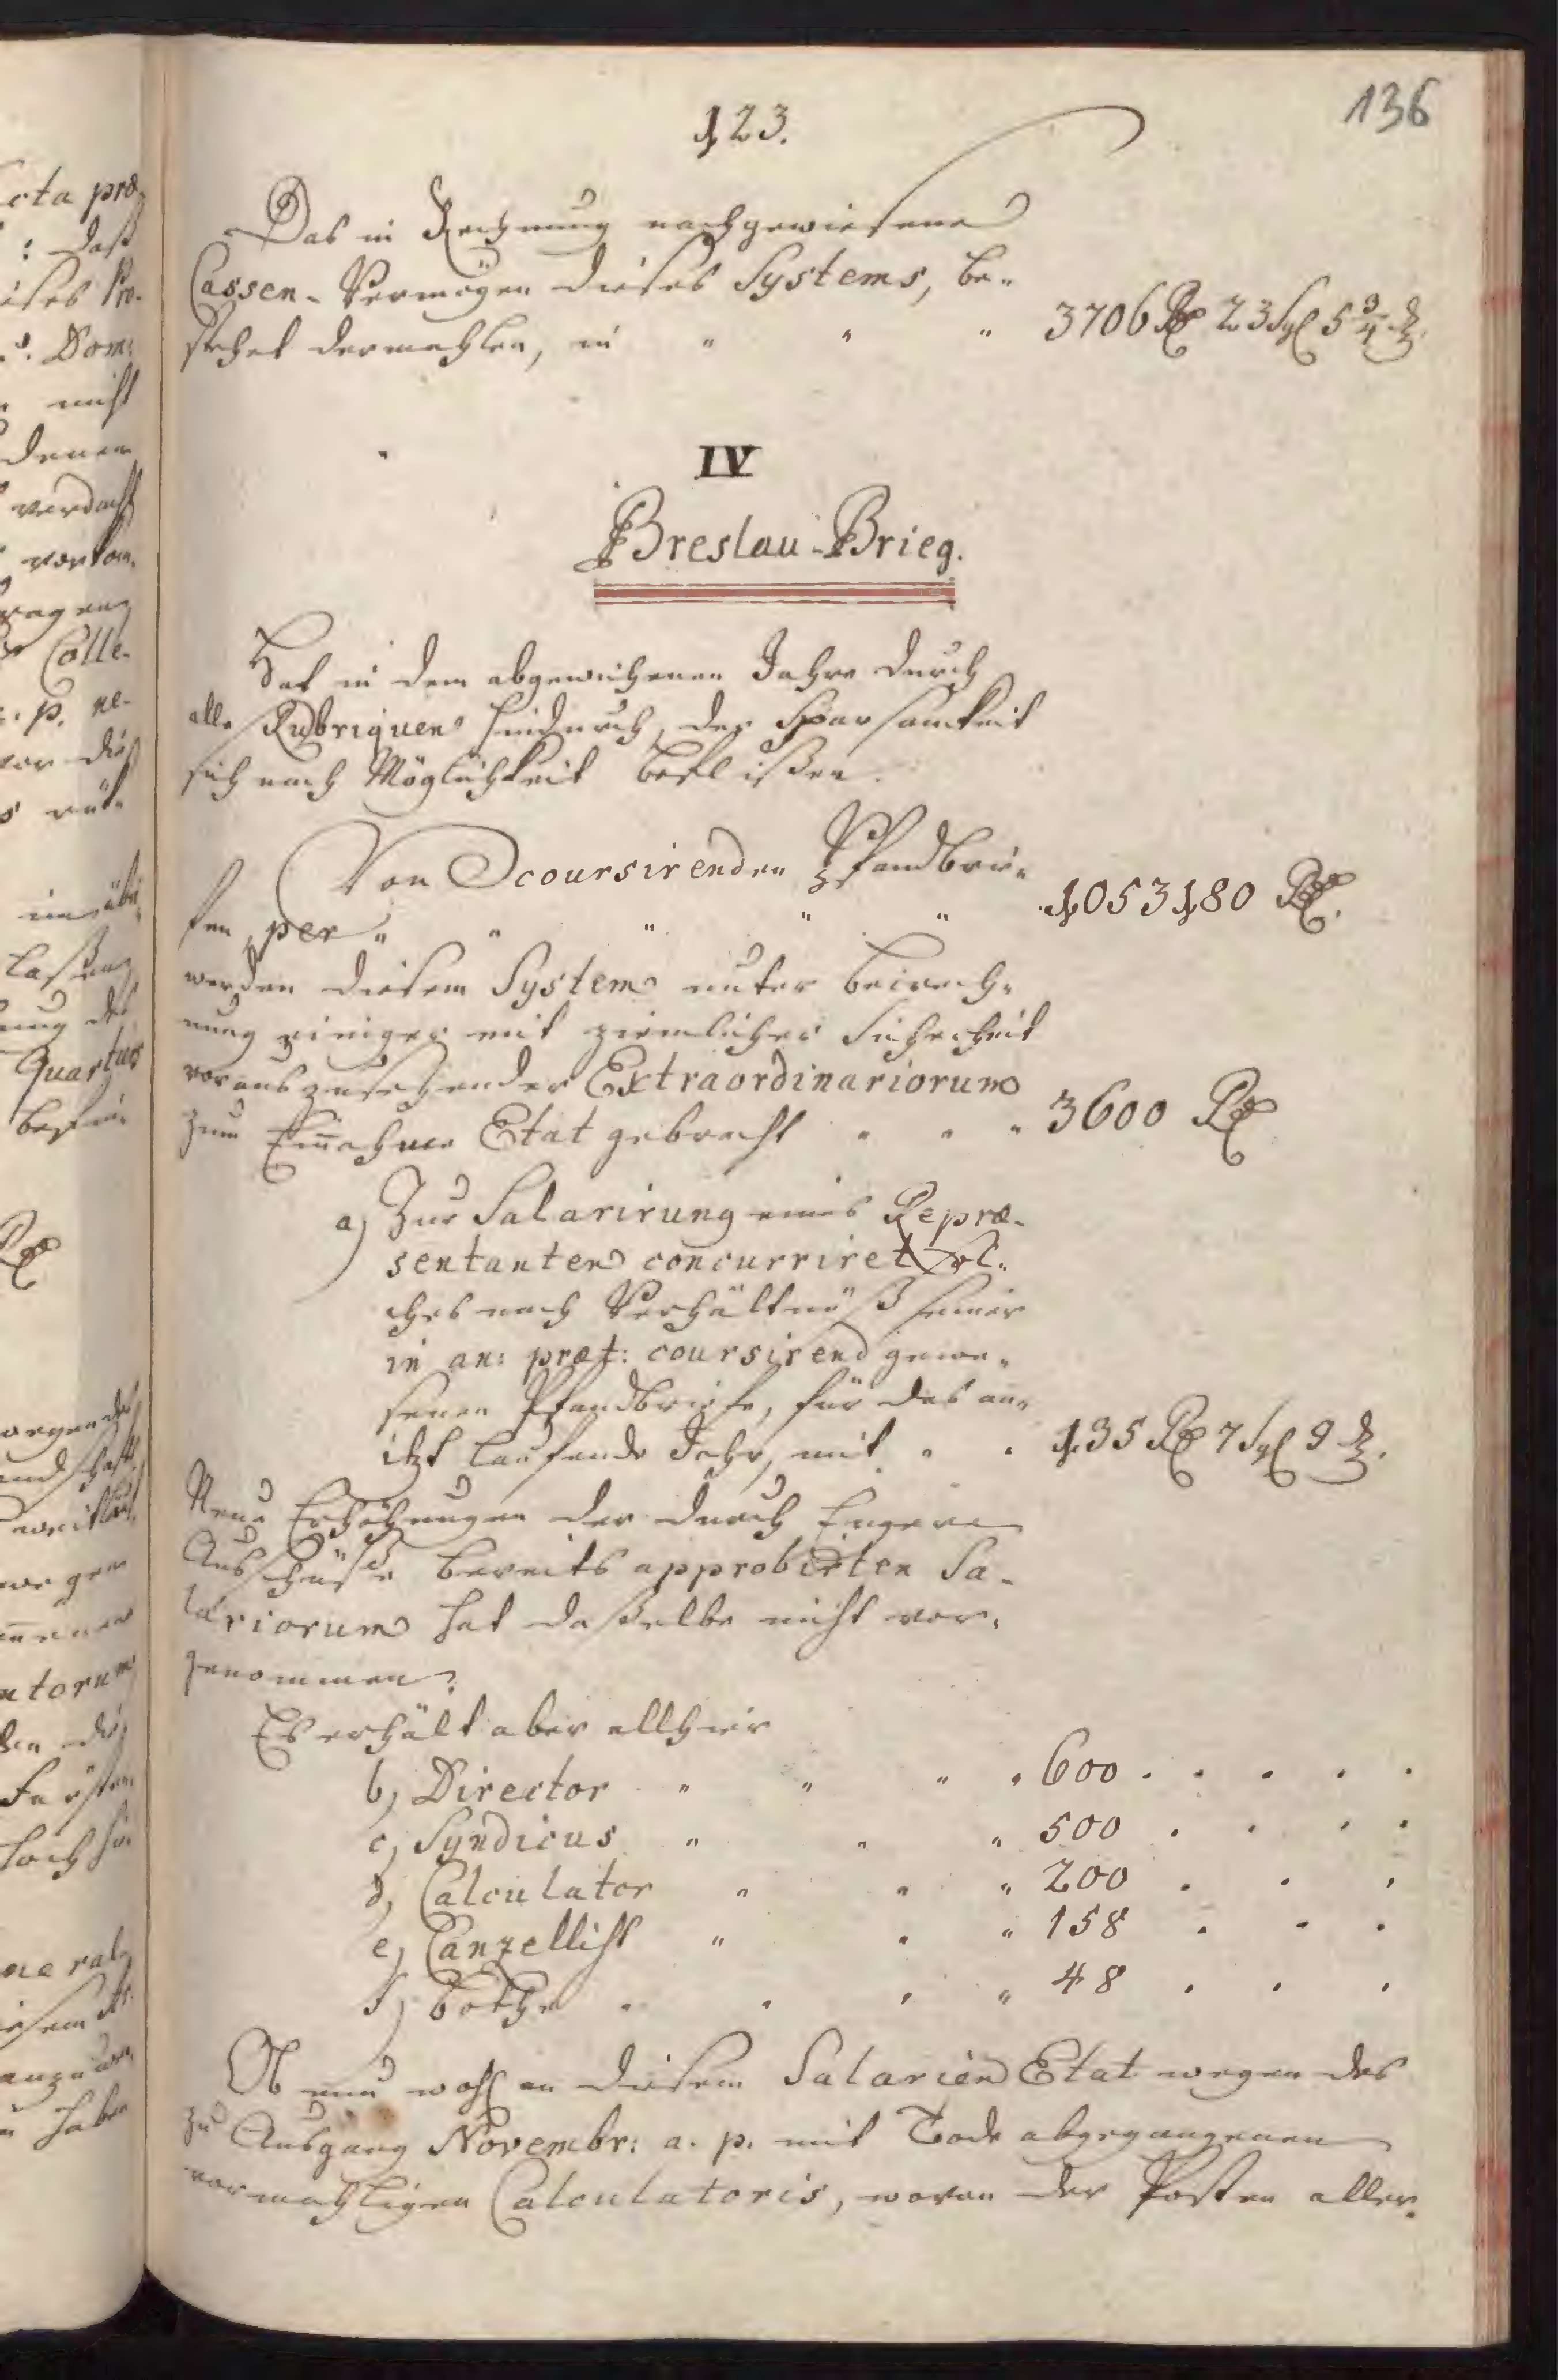 136
123.
Das in Rechnung nachgewiesene
Cassen-Vermögen dieses Systems, be-
stehet dermahlen, in " " " 3706 Rtl 23 Sgl 5 3/4 d.
IV
Breslau-Brieg.
Hat in dem abgewichenen Jahre durch
alle Rubriquen hindurch, der Sparsamkeit
sich nach Möglichkeit beflissen.
Von coursirenden Pfandbrie-
fen, per " " " " " 1053180 Rtl.
werden diesem System unter Beirech-
nung einiger mit ziemlicher Sicherheit
vorauszusehender Extraordinariorum
zum Einnahme Etat gebracht " " " 3600 Rtl
a) Zur Salarirung eines Repræ-
sentanten concurriret sol-
ches nach Verhältnüß seiner
in an: præt: coursirend gewe-
senen Pfandbriefe, für das an-
itzt laufende Jahr, mit " " 135 Rtl 7 Sgl 9 d.
Neue Erhöhungen der durch Engere
Ausschüße bereits approbirten Sa-
lariorum hat daßelbe nicht vor-
genommen.
Es erhält aber allhier
b) Director " " " " 600 . . . . .
c) Syndicus " " " 500 . . . .
d) Calculator " " " 200 . . .
e) Canzellist " " " 158 . . .
f) Bothe " " " " 48 . . .
Ob nun wohl an diesem Salarien Etat wegen des
zu Ausgang Novembr: a. p. mit Tode abgegangenen
vormahligen Calculatoris, wovon der Posten aller-